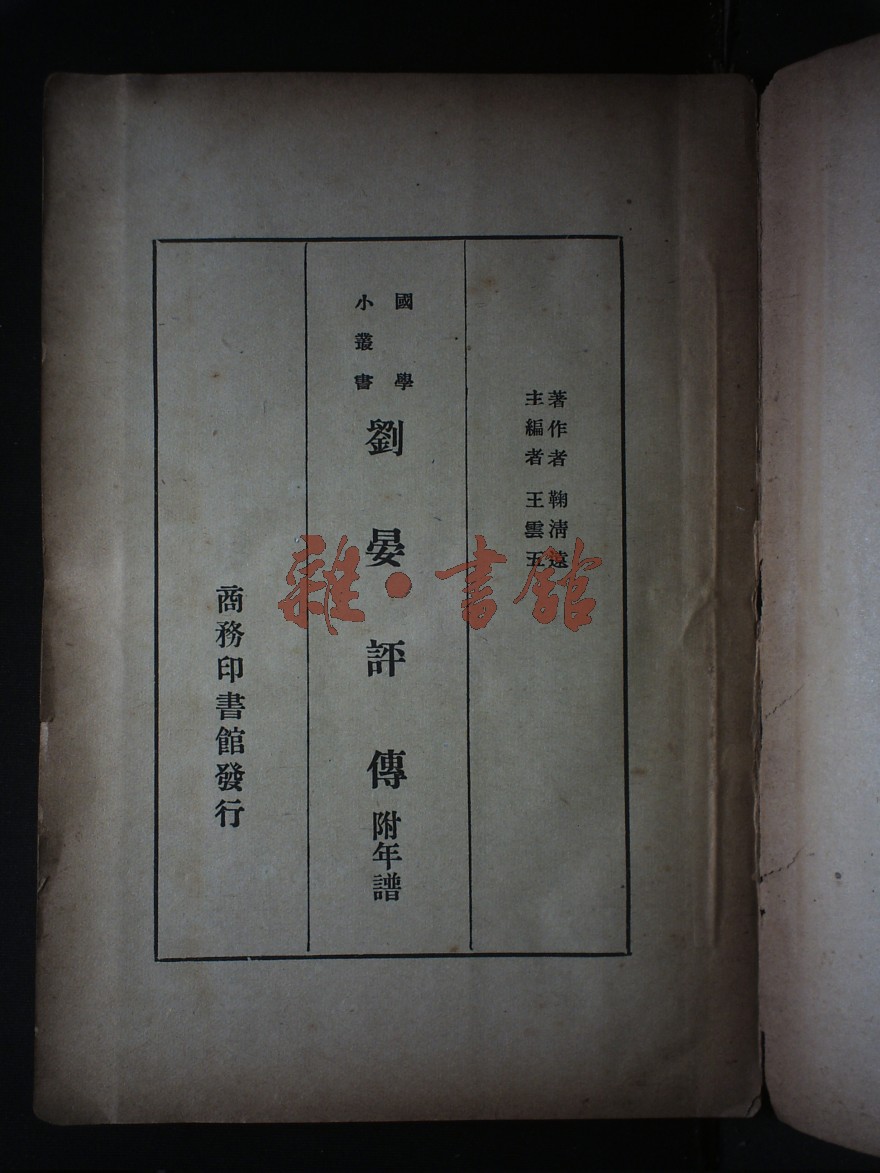 著作者 鞠清遠
主編者 王雲五
國學
小叢書
劉晏評傳 附年譜
商務印書館發行
雜·書館